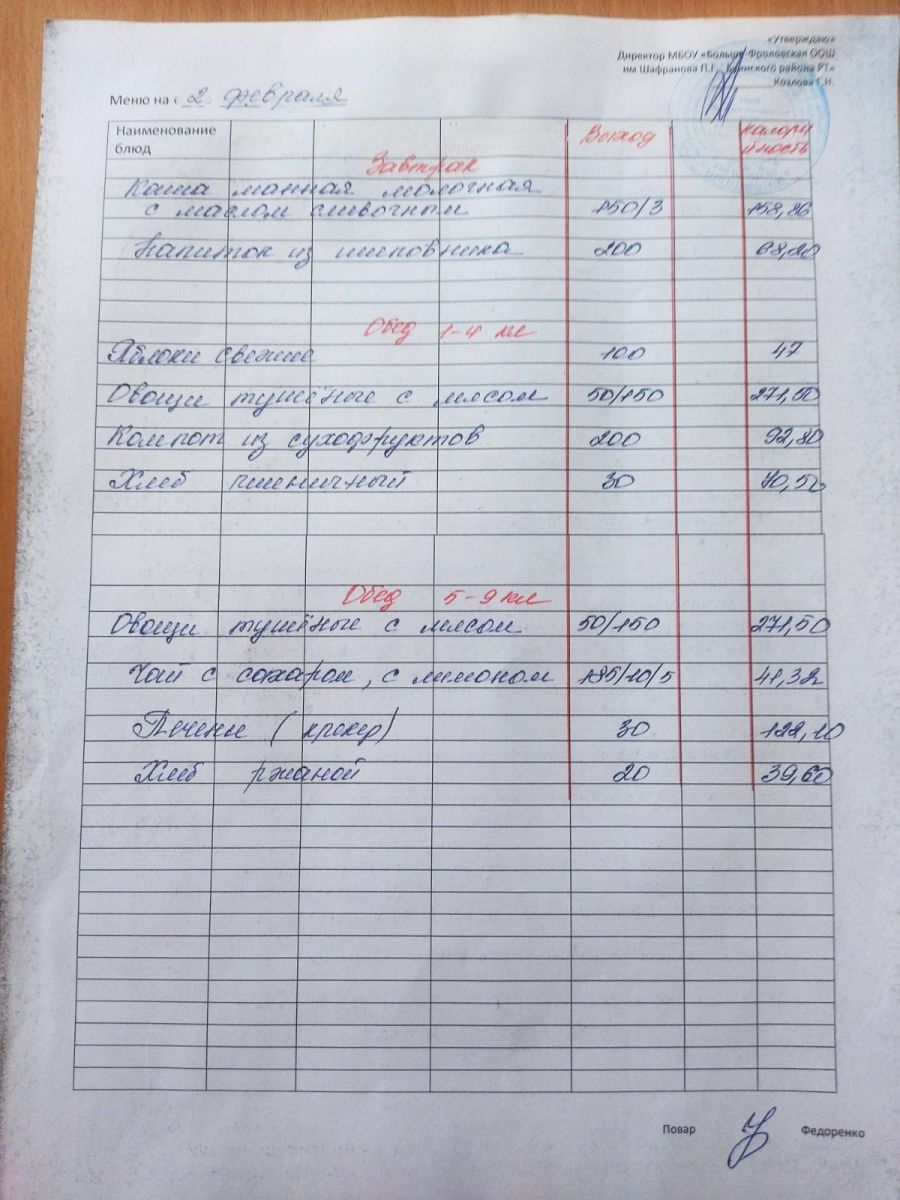 «Утверждаю»
Директор МБОУ «Больше-Фроловская ООШ
им Шафранова П.Г. Буинского района РТ»
Козлова Г.И.
Меню на « 2 » февраля
Наименование блюд Выход Калорийность
Завтрак
Каша манная молочная
с маслом сливочным 150/3 158,86
Напиток из шиповника 200 68,20
Обед 1-4 кл
Яблоки свежие 100 47
Овощи тушёные с мясом 50/150 271,50
Компот из сухофруктов 200 92,80
Хлеб пшеничный 30 70,52
Обед 5-9 кл
Овощи тушёные с мясом 50/150 271,50
Чай с сахаром, с лимоном 185/10/5 41,32
Печенье (крекер) 30 122,10
Хлеб ржаной 20 39,60
Повар Федоренко